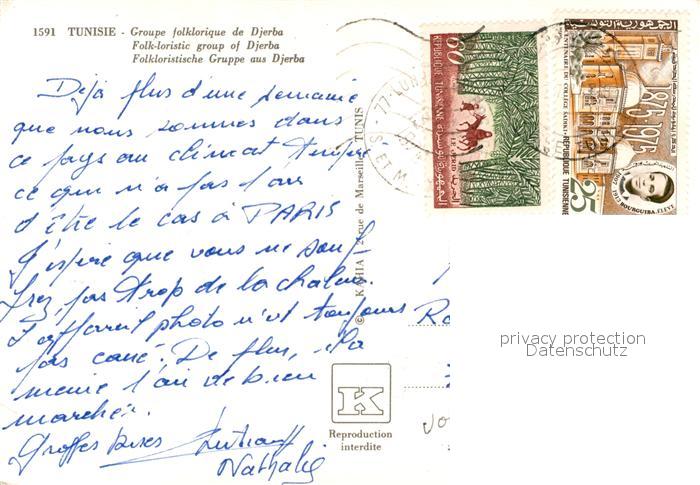 1591 TUNISIE - Groupe folklorique de Djerba
Folk-loristic group of Djerba
Folkloristische Gruppe aus Djerba
Déjà plus d'une semaine
que nous sommes dans
ce pays au climat tempéré
ce qui n'a pas l'air
d'être le cas à PARIS
J'espère que vous ne souf-
frez pas trop de la chaleur.
L'appareil photo n'est toujours
pas cassé. De plus, il a
même l'air de bien
marcher.
Grosses bises
Nathalie
© KAHIA 2 rue de Marseille TUNIS
K
Reproduction
interdite
60
REPUBLIQUE TUNISIENNE
الجمهورية التونسية
CENTENAIRE DU COLLEGE SADIKI
1875-1975
REPUBLIQUE TUNISIENNE
25
BOURGUIBA.ELEVE
77
S. ET M
Ro
privacy protection
Datenschutz